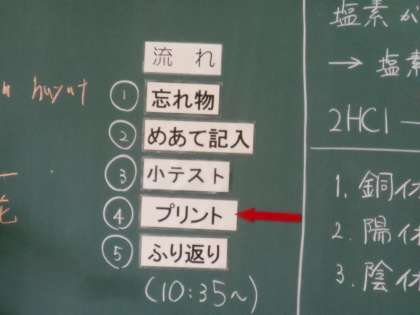 流れ
① 忘れ物
② めあて記入
③ 小テスト
④ プリント
⑤ ふり返り
(10:35~)
塩素が
→ 塩素
2HCl →
1. 銅
2. 陽
3. 陰